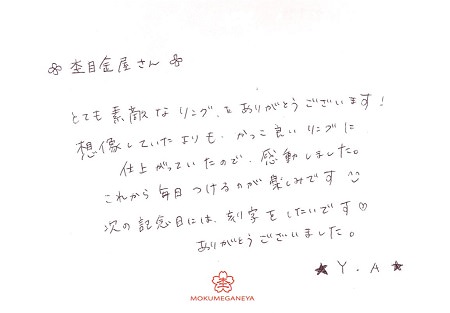 ❀ 杢目金屋さん ❀
とても素敵なリング、をありがとうございます！
想像していたよりも、かっこ良いリングに
仕上がっていたので、感動しました。
これから毎日つけるのが楽しみです
次の記念日には、刻字をしたいです♡
ありがとうございました。
★ Y．A ★
杢
MOKUMEGANEYA